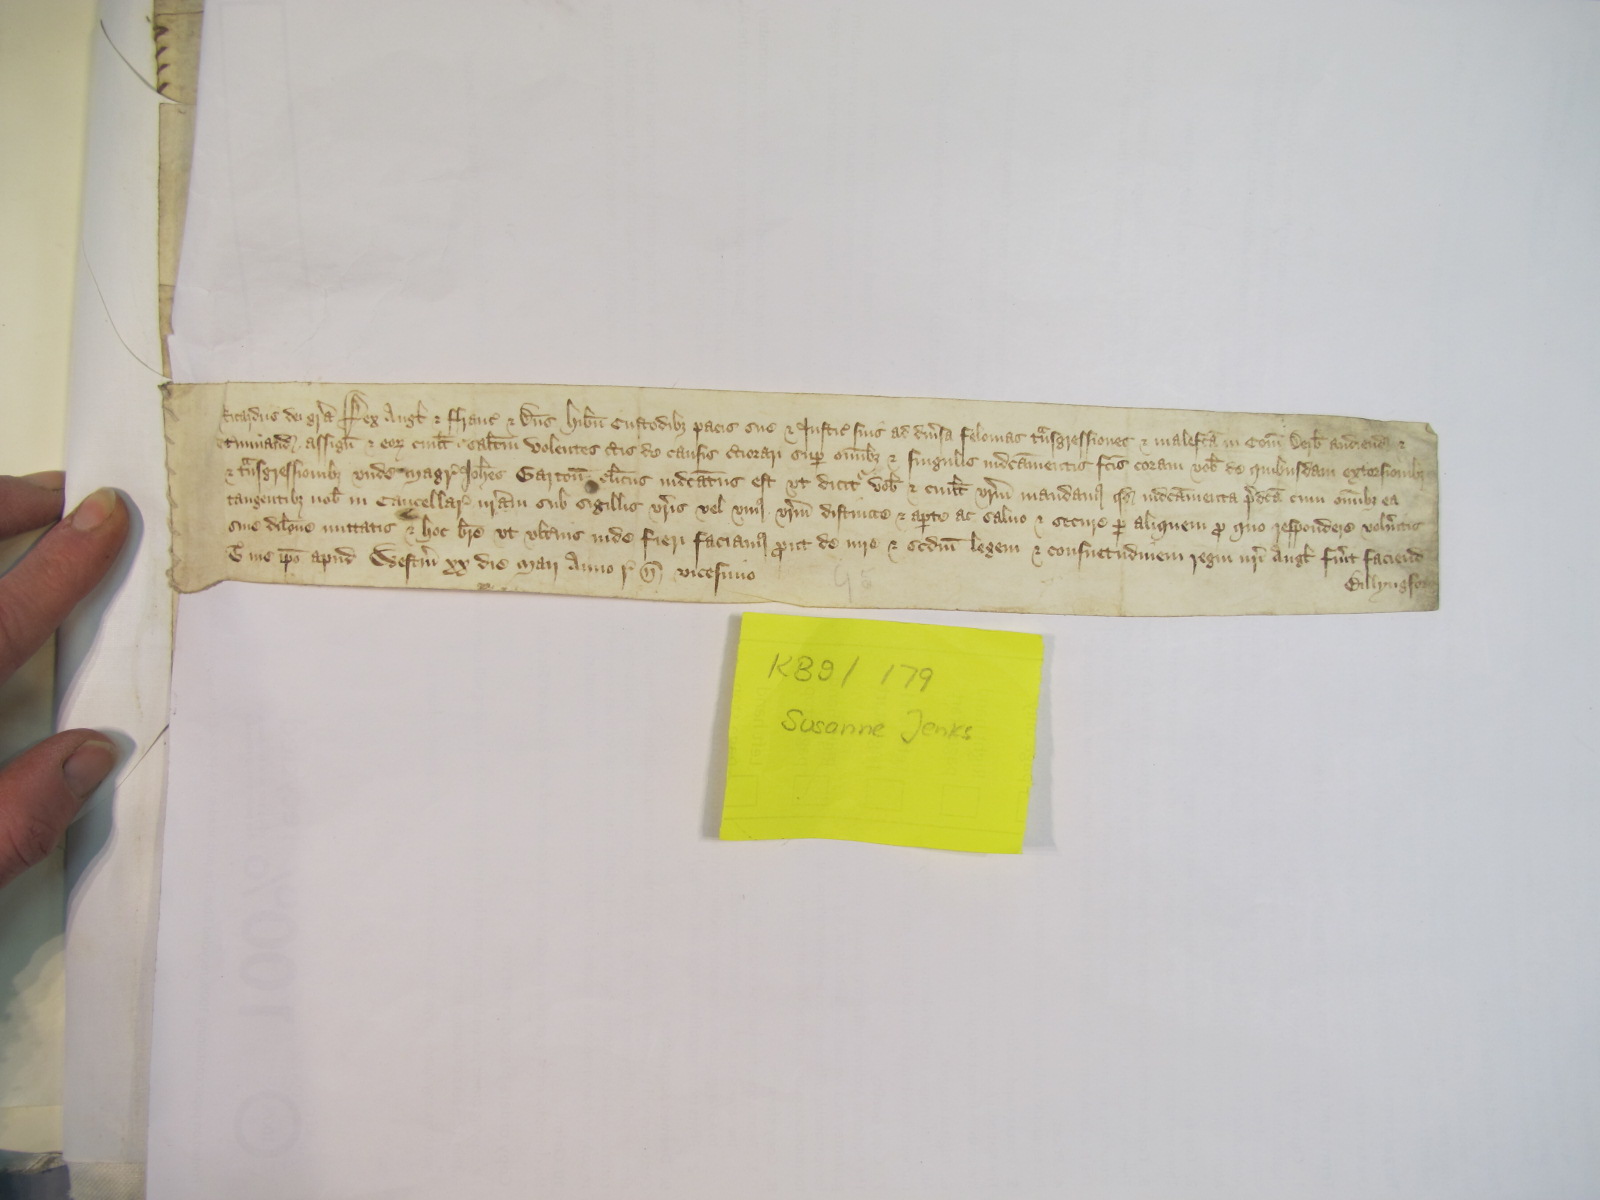 Ricardus dei gr̄a Rex Angl̄ ⁊ Franc̄ ⁊ Dn̄s Hib̄n Custodibȝ pacis sue ⁊ Justic̄ suis ad diu̾sa felonias tn̄sgressiones ⁊ malefc̄a in Com̄ Derb̄ audiend̄ ⁊
t̾minand̄ assign̄ ⁊ eoȝ cuil̄t sal̄tm Volentes c̾tis de causis c̾ciorari sup̄ om̄ibȝ ⁊ singulis indc̄amentis fc̄is coram vob̄ de quibusdam extorsionibȝ
⁊ tn̄sgressionibȝ unde Magr̄ Joh̄es Garton̄ cl̄icus indc̄atus est ut dicit̾ vob̄ ⁊ cuil̄t vr̄m mandamꝰ qd̄ indc̄amenta p̄dc̄a cum om̄ibȝ ea
tangentibȝ nob̄ in Cancellar̄ nr̄am sub sigillis vr̄is vel uniꝰ vr̄m distincte ⁊ ap̄te ac saluo ⁊ secure ꝑ aliquem ꝓ quo respondere volu̾itis
sine dil̄one mittatis ⁊ hoc br̄e ut ult̾ius inde fieri faciamꝰ ꝓut de iure ⁊ scdm̄ legem ⁊ consuetudinem regni nr̄i Angl̄ fu̾it faciend̄
T̄ me ip̄o apud Westm̄ xx die Maii Anno r̄ n̄ vicesimo
Billyngford
95
KB9/ 179
Susanne Jenks
100%
©